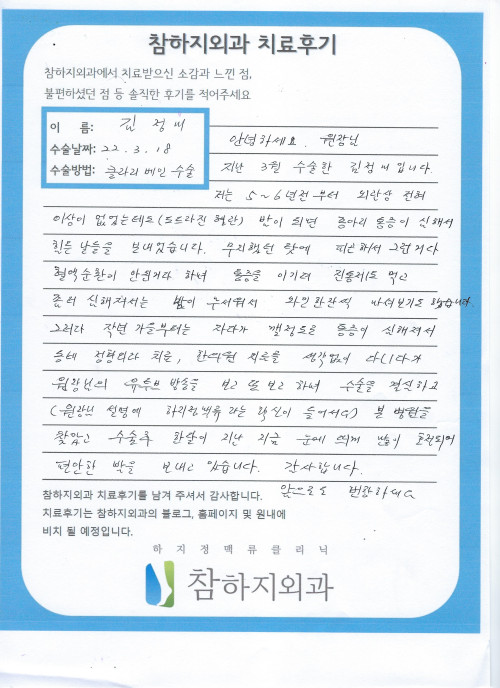 참하지외과 치료후기
참하지외과에서 치료받으신 소감과 느낀 점,
불편하셨던 점 등 솔직한 후기를 적어주세요
이 름: 김정
수술날짜: 22. 3. 18
수술방법: 클라리베인 수술
안녕하세요. 원장님
지난 3월 수술한 김정 입니다.
저는 5~6년전부터 외관상 전혀
이상이 없었는데도 (도드라진 혈관) 밤이 되면 종아리 통증이 심해서
힘든 날들을 보내었습니다. 무리했던 탓에 피곤해서 그런거다
혈액순환이 안된거다 하며 통증을 이기려 진통제도 먹고
좀더 심해져서는 밤이 무서워서 와인한잔씩 마셔보기도 했습니다.
그러다 작년 가을부터는 자다가 깰정도로 통증이 심해져서
동네 정형외과 치료, 한의원 치료를 생각없이 다니다가
원장님의 유튜브 방송을 보고 또 보고 하며 수술을 결심하고
(원장님 설명에 하지정맥류 라는 확신이 들어서요) 본 병원을
찾았고 수술후 한달이 지난 지금 눈에 띄게 많이 호전되어
편안한 밤을 보내고 있습니다. 감사합니다.
앞으로도 번창하세요
참하지외과 치료후기를 남겨 주셔서 감사합니다.
치료후기는 참하지외과의 블로그, 홈페이지 및 원내에
비치 될 예정입니다.
하지정맥류클리닉
참하지외과